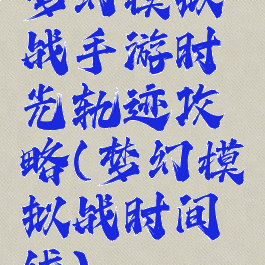 梦幻模拟
战手游时
光轨迹攻
略(梦幻模
拟战时间
线)